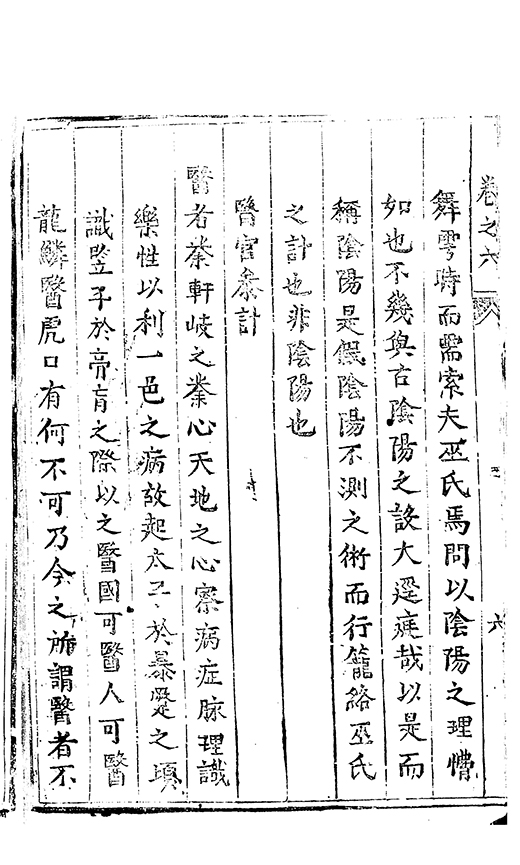 卷之六
六
舞雩時而需索夫巫氏焉問以陰陽之理懵
如也不幾與古陰陽之設大逕庭哉以是而
稱陰陽是假陰陽不測之術而行籠絡巫氏
之計也非陰陽也
醫官叅計
醫者業軒岐之業心天地之心察病症脉理識
藥性以利一邑之病故起太子於暴蹷之頃
識竪子於膏肓之際以之醫國可醫人可醫
龍鱗醫虎口有何不可乃今之所謂醫者不